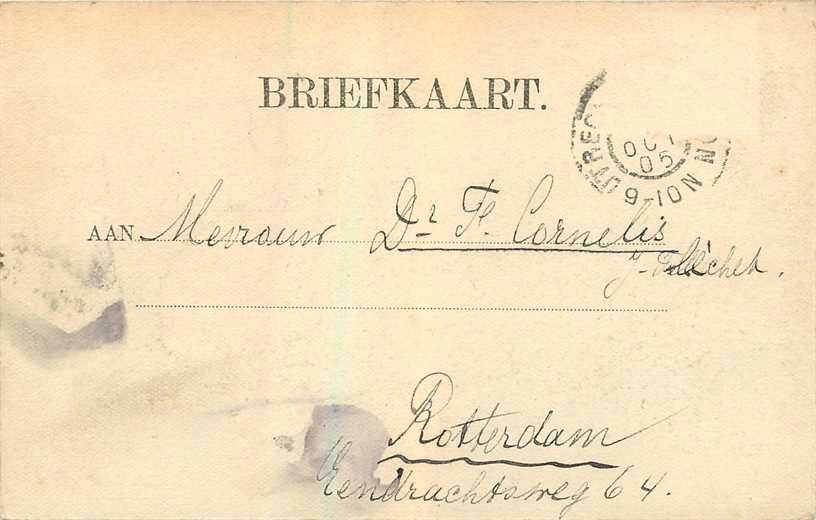 BRIEFKAART.
UTREC
OCT
05
9-10N
AAN Mevrouw Dr. F. Cornelis
Rotterdam
Eendrachtsweg 64.